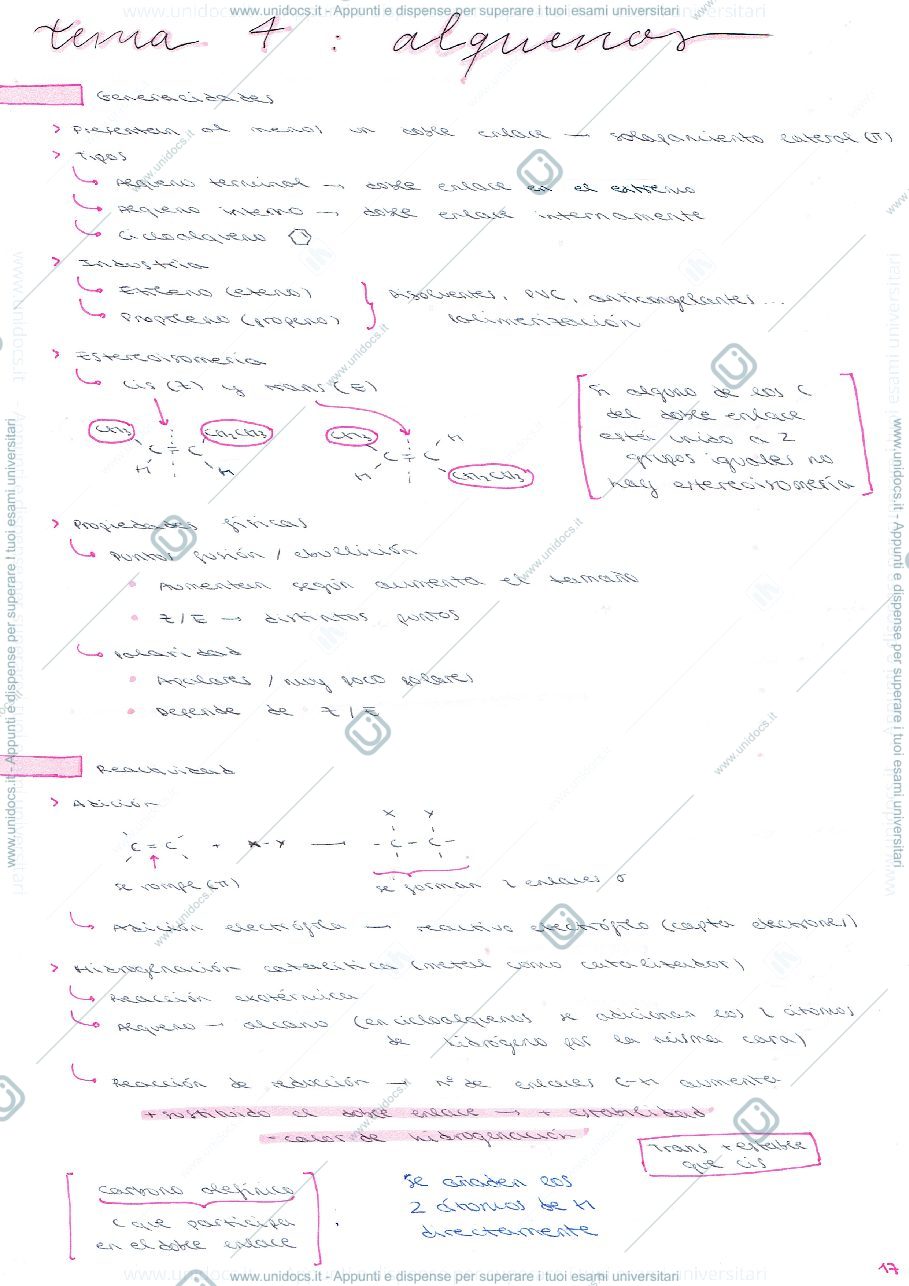 www.unidocs.it - Appunti e dispense per superare i tuoi esami universitari
tema 4 : alquenos
Generalidades
> Presentan al menos un doble enlace → solapamiento lateral (π)
> Tipos
Alqueno terminal → doble enlace en el extremo
Alqueno interno → doble enlace internamente
Cicloalqueno
> Industria
Etileno (eteno)
Propileno (propeno)
Disolventes, PVC, anticongelantes...
(alimentización
> Estereoisomería
cis (Z) y trans (E)
CH3 CH2CH3
C = C
H H
CH3 H
C = C
H CH2CH3
Si alguno de los C
del doble enlace
está unido a 2
grupos iguales no
hay estereoisomería
> Propiedades físicas
Puntos fusión / ebullición
• Aumentan según aumenta el tamaño
• Z/E → distintos puntos
Polaridad
• Apolares / muy poco polares
• Depende de Z/E
Reactividad
> Adición
X Y
C = C + X-Y → - C - C -
se rompe (π) se forman 2 enlaces σ
Adición electrófila → reactivo electrófilo (capta electrones)
> Hidrogenación catalítica (metal como catalizador)
Reacción exotérmica
Alqueno → alcano (en cicloalquenos se adicionan los 2 átomos
de hidrógeno por la misma cara)
Reacción de reducción → nº de enlaces C-H aumenta
+ sustituido el doble enlace → + estabilidad
- calor de hidrogenación
Trans + estable
que cis
Carbono olefínico
C que participa
en el doble enlace
Se añaden los
2 átomos de H
directamente
17
www.unidocs.it - Appunti e dispense per superare i tuoi esami universitari